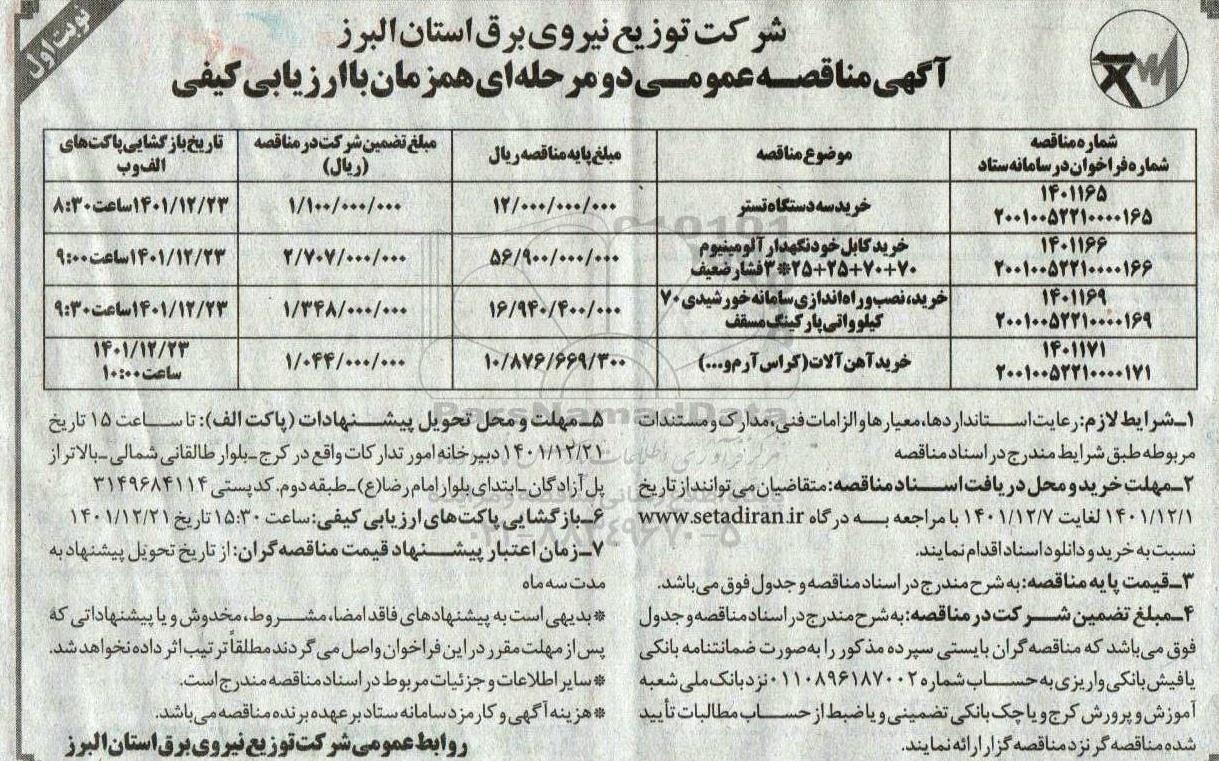 نوبت اول
شرکت توزیع نیروی برق استان البرز
آگهی مناقصه عمومی دو مرحله‌ای همزمان با ارزیابی کیفی
شماره مناقصه
شماره فراخوان در سامانه ستاد
موضوع مناقصه
مبلغ پایه مناقصه ریال
مبلغ تضمین شرکت در مناقصه
(ریال)
تاریخ بازگشایی پاکت‌های
الف و ب
۱۴۰۱۱۶۵
۲۰۰۱۰۰۵۲۲۱۰۰۰۰۱۶۵
خرید سه دستگاه تستر
۱۲/۰۰۰/۰۰۰/۰۰۰
۱/۱۰۰/۰۰۰/۰۰۰
۱۴۰۱/۱۲/۲۳ ساعت ۸:۳۰
۱۴۰۱۱۶۶
۲۰۰۱۰۰۵۲۲۱۰۰۰۰۱۶۶
خرید کابل خودنگهدار آلومینیوم
۷۰+۷۰+۲۵+۲۵*۳ فشار ضعیف
۵۶/۹۰۰/۰۰۰/۰۰۰
۲/۷۰۷/۰۰۰/۰۰۰
۱۴۰۱/۱۲/۲۳ ساعت ۹:۰۰
۱۴۰۱۱۶۹
۲۰۰۱۰۰۵۲۲۱۰۰۰۰۱۶۹
خرید، نصب و راه‌اندازی سامانه خورشیدی ۷۰
کیلوواتی پارکینگ مسقف
۱۶/۹۴۰/۴۰۰/۰۰۰
۱/۳۴۸/۰۰۰/۰۰۰
۱۴۰۱/۱۲/۲۳ ساعت ۹:۳۰
۱۴۰۱۱۷۱
۲۰۰۱۰۰۵۲۲۱۰۰۰۰۱۷۱
خرید آهن آلات (کراس آرم و...)
۱۰/۸۷۶/۶۶۹/۳۰۰
۱/۰۴۴/۰۰۰/۰۰۰
۱۴۰۱/۱۲/۲۳
ساعت ۱۰:۰۰
۱ـ شرایط لازم: رعایت استانداردها، معیارها و الزامات فنی، مدارک و مستندات
مربوطه طبق شرایط مندرج در اسناد مناقصه
۲ـ مهلت خرید و محل دریافت اسناد مناقصه: متقاضیان می‌توانند از تاریخ
۱۴۰۱/۱۲/۱ لغایت ۱۴۰۱/۱۲/۷ با مراجعه به درگاه www.setadiran.ir
نسبت به خرید و دانلود اسناد اقدام نمایند.
۳ـ قیمت پایه مناقصه: به شرح مندرج در اسناد مناقصه و جدول فوق می‌باشد.
۴ـ مبلغ تضمین شرکت در مناقصه: به شرح مندرج در اسناد مناقصه و جدول
فوق می‌باشد که مناقصه‌گران بایستی سپرده مذکور را به صورت ضمانتنامه بانکی
یا فیش بانکی واریزی به حساب شماره ۰۱۱۰۸۹۶۱۸۷۰۰۲ نزد بانک ملی شعبه
آموزش و پرورش کرج و یا چک بانکی تضمینی و یا ضبط از حساب مطالبات تأیید
شده مناقصه‌گر نزد مناقصه‌گزار ارائه نمایند.
۵ـ مهلت و محل تحویل پیشنهادات (پاکت الف): تا ساعت ۱۵ تاریخ
۱۴۰۱/۱۲/۲۱ دبیرخانه امور تدارکات واقع در کرج ـ بلوار طالقانی شمالی ـ بالاتر از
پل آزادگان ـ ابتدای بلوار امام رضا(ع) ـ طبقه دوم. کدپستی ۳۱۴۹۶۸۴۱۱۴
۶ـ بازگشایی پاکت‌های ارزیابی کیفی: ساعت ۱۵:۳۰ تاریخ ۱۴۰۱/۱۲/۲۱
۷ـ زمان اعتبار پیشنهاد قیمت مناقصه‌گران: از تاریخ تحویل پیشنهاد به
مدت سه ماه
* بدیهی است به پیشنهادهای فاقد امضا، مشروط، مخدوش و یا پیشنهاداتی که
پس از مهلت مقرر در این فراخوان واصل می‌گردند مطلقاً ترتیب اثر داده نخواهد شد.
* سایر اطلاعات و جزئیات مربوط در اسناد مناقصه مندرج است.
* هزینه آگهی و کارمزد سامانه ستاد بر عهده برنده مناقصه می‌باشد.
روابط عمومی شرکت توزیع نیروی برق استان البرز
ParsNamadData